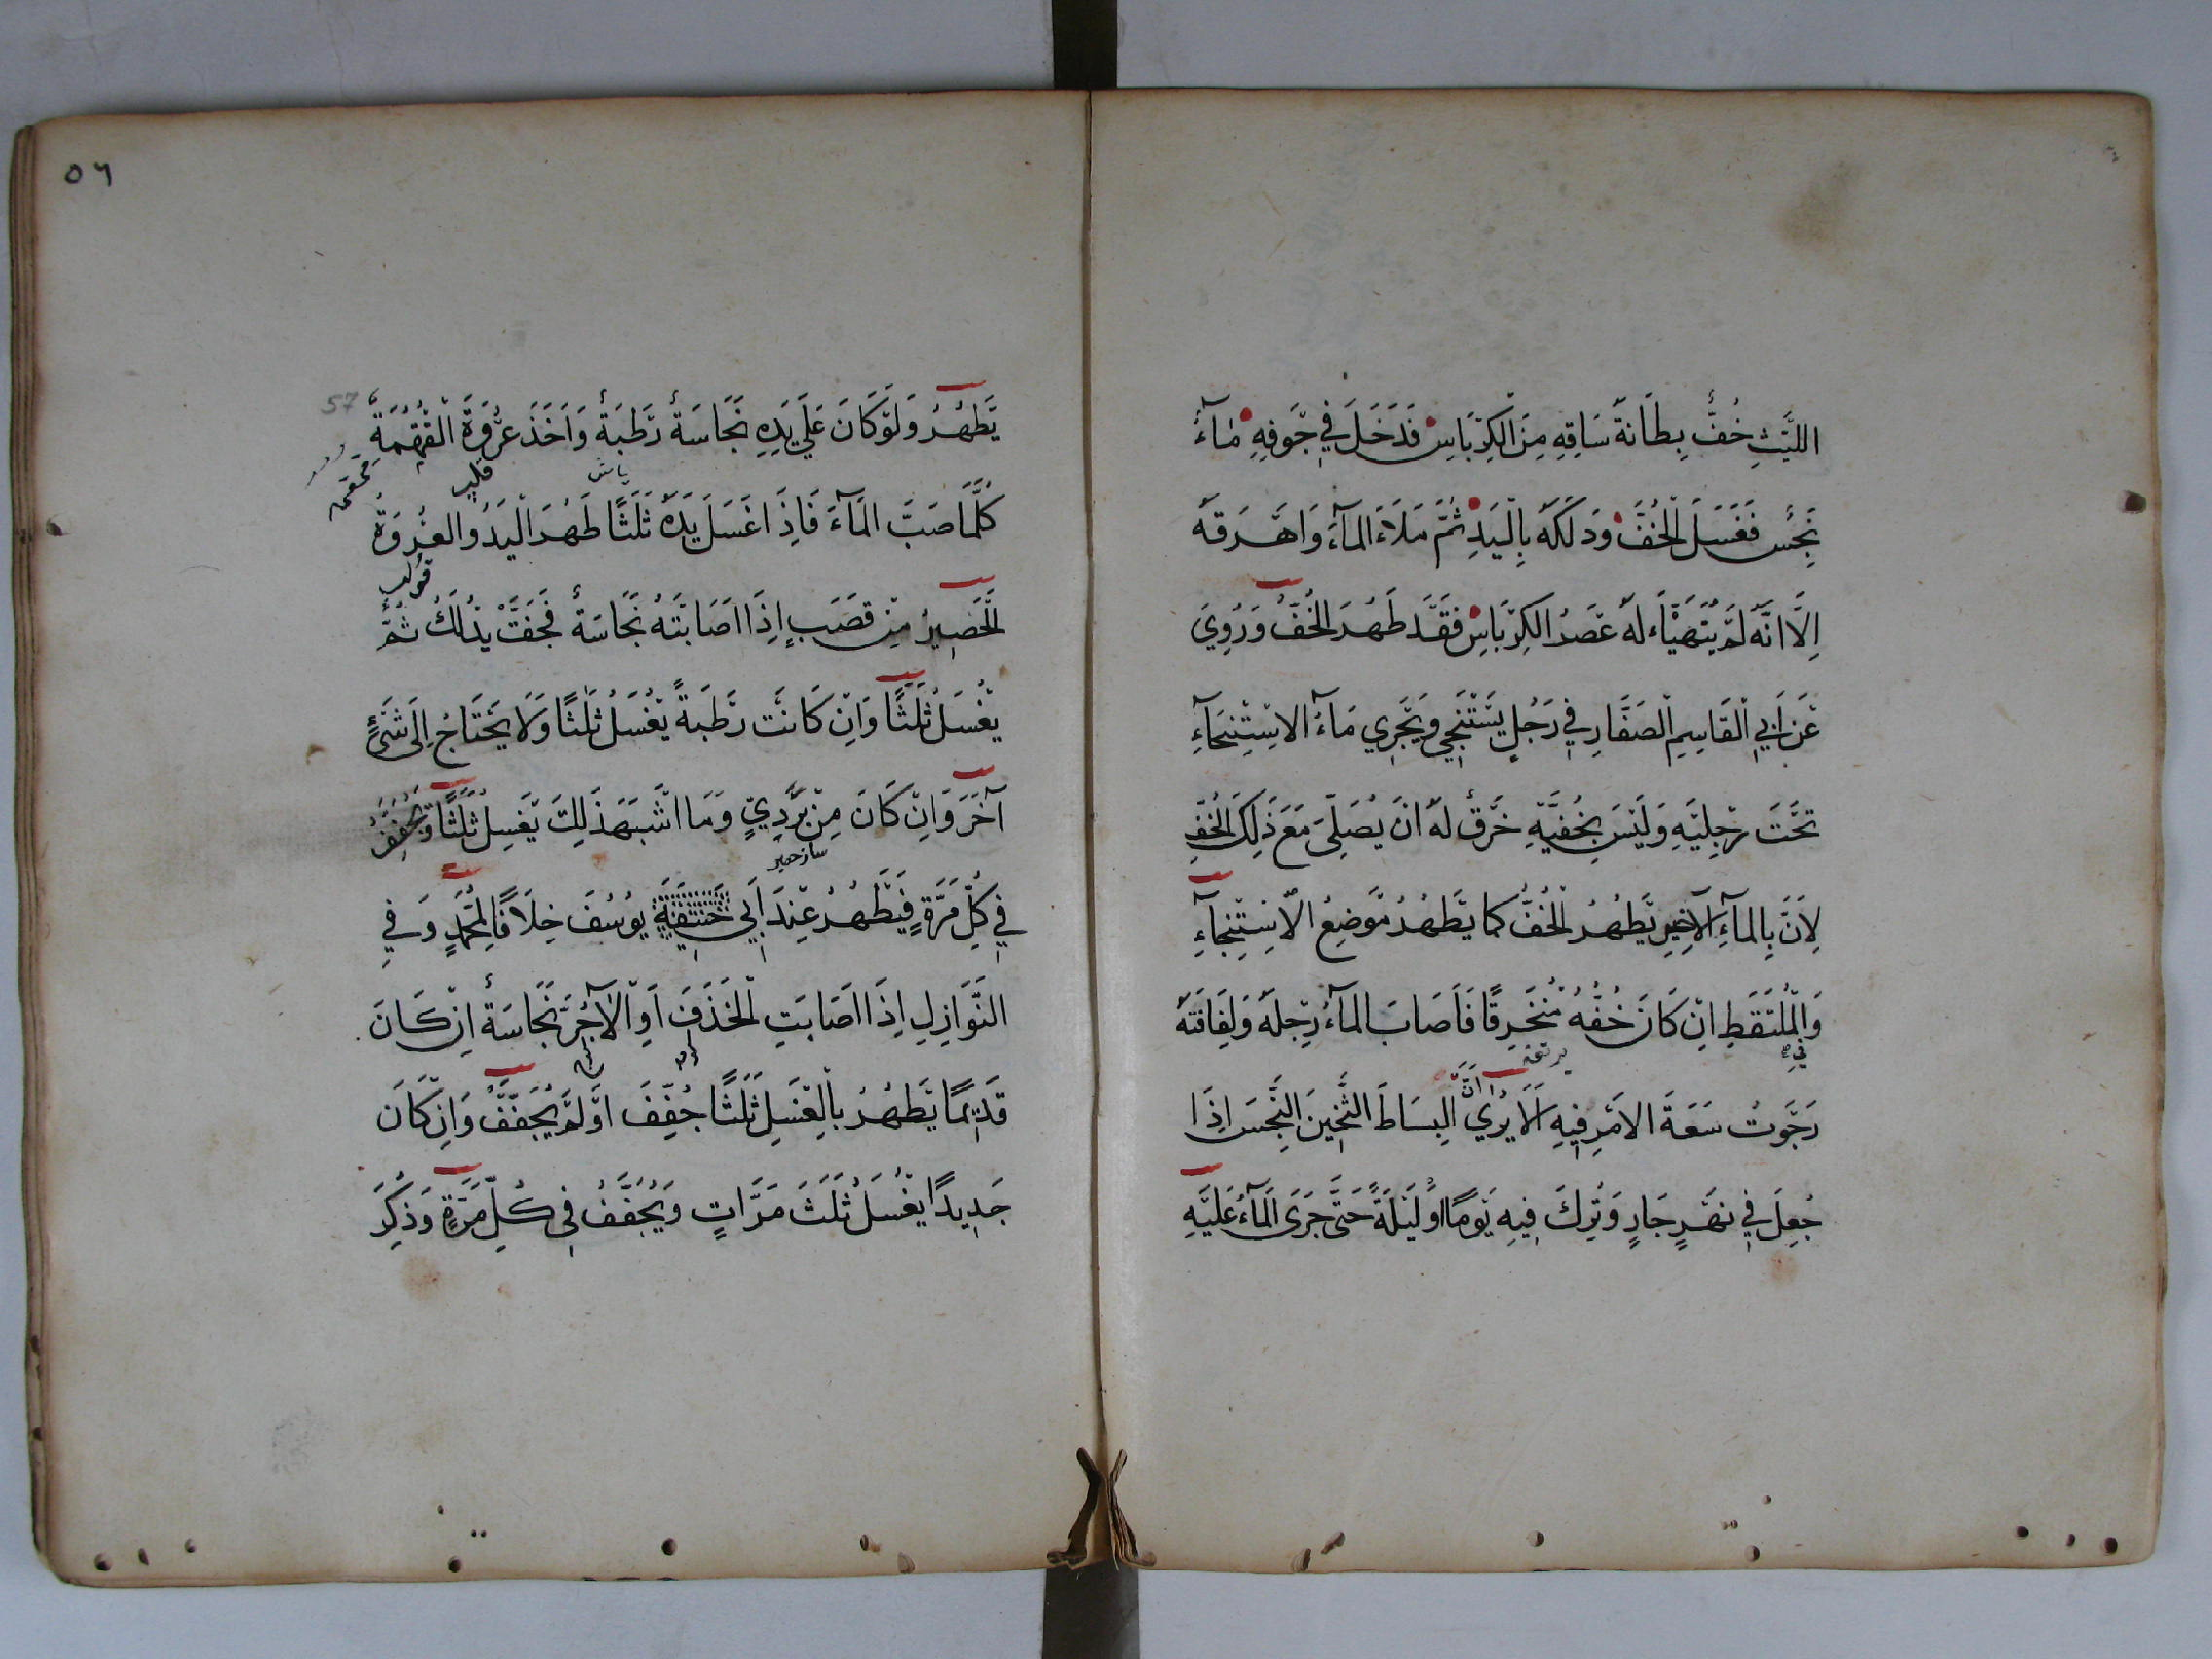 اللَّيْثِ خُفٌّ بِطَانَةُ سَاقِهِ مِنَ الْكِرْبَاسِ فَدَخَلَ فِي جَوْفِهِ مَاءٌ
نَجِسٌ فَغَسَلَ الْخُفَّ وَدَلَكَهُ بِالْيَدِ ثُمَّ مَلَاءَ الْمَآءَ وَاَهْرَقَهُ
اِلَّا اَنَّهُ لَمْ يَتَهَيَّاءْ لَهُ عَصْرُ الْكِرْبَاسِ فَقَدْ طَهُرَ الْخُفُّ وَرُوِيَ
عَنْ اَبِي الْقَاسِمِ الصَّفَّارِ فِي رَجُلٍ يَسْتَنْجِي وَيَجْرِي مَآءُ الِاسْتِنْجَآءِ
تَحْتَ رِجْلَيْهِ وَلَيْسَ بِخُفَّيْهِ خَرْقٌ لَهُ اَنْ يُصَلِّيَ مَعَ ذَلِكَ الْخُفِّ
لِاَنَّ بِالْمَآءِ الْاَخِيرِ يَطْهُرُ الْخُفُّ كَمَا يَطْهُرُ مَوْضِعُ الِاسْتِنْجَآءِ
وَالْمُلْتَقَطِ اِنْ كَانَ خُفُّهُ مُنْخَرِقًا فَاَصَابَ الْمَآءُ رِجْلَهُ وَلِفَافَتَهُ
في صح
رَجَوْتُ سَعَةَ الْاَمْرِ فِيهِ اَلَا يُرَي اَنَّ الْبِسَاطَ الثَّخِينَ النَّجِسَ اِذَا
جُعِلَ فِي نَهْرٍ جَارٍ وَتُرِكَ فِيهِ يَوْمًا اَوْ لَيْلَةً حَتَّى جَرَى الْمَآءُ عَلَيْهِ
٥٦
57
يَطْهُرُ وَلَوْ كَانَ عَلَي يَدِهِ نَجَاسَةٌ رَطْبَةٌ وَاَخَذَ عُرْوَةَ الْقُمْقُمَةِ
ياش
قلب
كُلَّمَا صَبَّ الْمَآءَ فَاِذَا غَسَلَ يَدَهُ ثَلَثًا طَهُرَ الْيَدُ وَالْعُرْوَةُ
اَلْحَصِيرُ مِنْ قَصَبٍ اِذَا اَصَابَتْهُ نَجَاسَةٌ فَجَفَّتْ يُدْلَكُ ثُمَّ
يُغْسَلُ ثَلَثًا وَاِنْ كَانَتْ رَطْبَةً يُغْسَلُ ثَلَثًا وَلَا يَحْتَاجُ اِلَى شَيْءٍ
آخَرَ وَاِنْ كَانَ مِنْ بَرْدِيٍّ وَمَا اَشْبَهَ ذَلِكَ يُغْسَلُ ثَلَثًا وَيُجَفَّفُ
ساز حصير
فِي كُلِّ مَرَّةٍ فَيَطْهُرُ عِنْدَ اَبِي حَنِيفَةَ يُوسُفَ خِلَافًا لِمُحَمَّدٍ وَفِي
النَّوَازِلِ اِذَا اَصَابَتِ الْخَذَفَ اَوِ الْآجُرَّ نَجَاسَةٌ اِنْ كَانَ
قَدِيمًا يَطْهُرُ بِالْغَسْلِ ثَلَثًا جُفِّفَ اَوْ لَمْ يُجَفَّفْ وَاِنْ كَانَ
جَدِيدًا يُغْسَلُ ثَلَثَ مَرَّاتٍ وَيُجَفَّفُ فِي كُلِّ مَرَّةٍ وَذُكِرَ